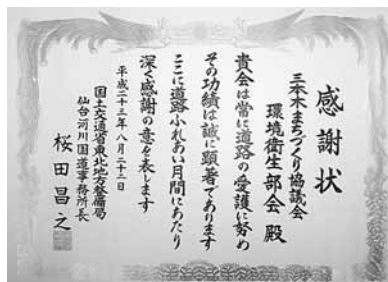 感謝状
三本木まちづくり協議会
環境衛生部会 殿
貴会は常に道路の愛護に努め
その功績は誠に顕著であります
ここに道路ふれあい月間にあたり
深く感謝の意を表します
平成二十三年八月二十二日
国土交通省東北地方整備局
仙台河川国道事務所長
桜田昌之